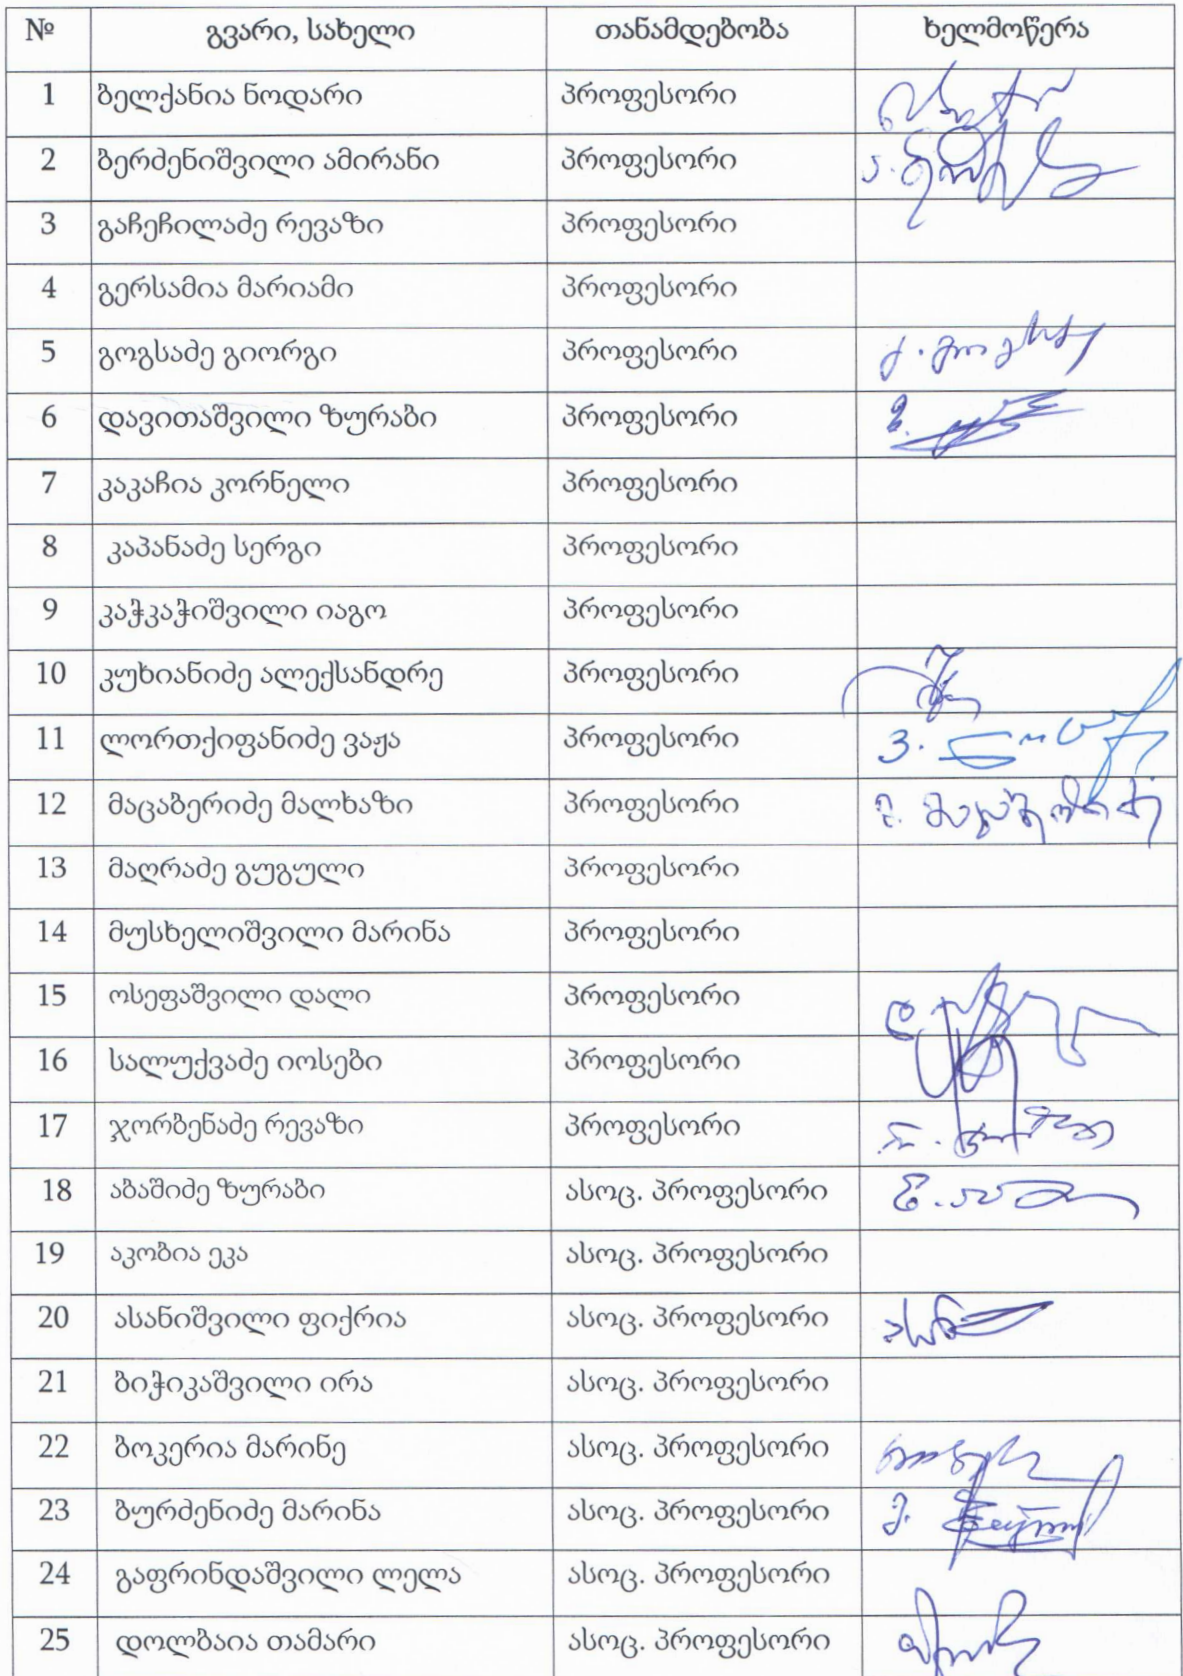 № გვარი, სახელი თანამდებობა ხელმოწერა
1 ბელქანია ნოდარი პროფესორი
2 ბერძენიშვილი ამირანი პროფესორი
3 გაჩეჩილაძე რევაზი პროფესორი
4 გერსამია მარიამი პროფესორი
5 გოგსაძე გიორგი პროფესორი
6 დავითაშვილი ზურაბი პროფესორი
7 კაკაჩია კორნელი პროფესორი
8 კაპანაძე სერგი პროფესორი
9 კაჭკაჭიშვილი იაგო პროფესორი
10 კუხიანიძე ალექსანდრე პროფესორი
11 ლორთქიფანიძე ვაჟა პროფესორი
12 მაცაბერიძე მალხაზი პროფესორი
13 მაღრაძე გუგული პროფესორი
14 მუსხელიშვილი მარინა პროფესორი
15 ოსეფაშვილი დალი პროფესორი
16 სალუქვაძე იოსები პროფესორი
17 ჯორბენაძე რევაზი პროფესორი
18 აბაშიძე ზურაბი ასოც. პროფესორი
19 აკობია ეკა ასოც. პროფესორი
20 ასანიშვილი ფიქრია ასოც. პროფესორი
21 ბიჭიკაშვილი ირა ასოც. პროფესორი
22 ბოკერია მარინე ასოც. პროფესორი
23 ბურძენიძე მარინა ასოც. პროფესორი
24 გაფრინდაშვილი ლელა ასოც. პროფესორი
25 დოლბაია თამარი ასოც. პროფესორი